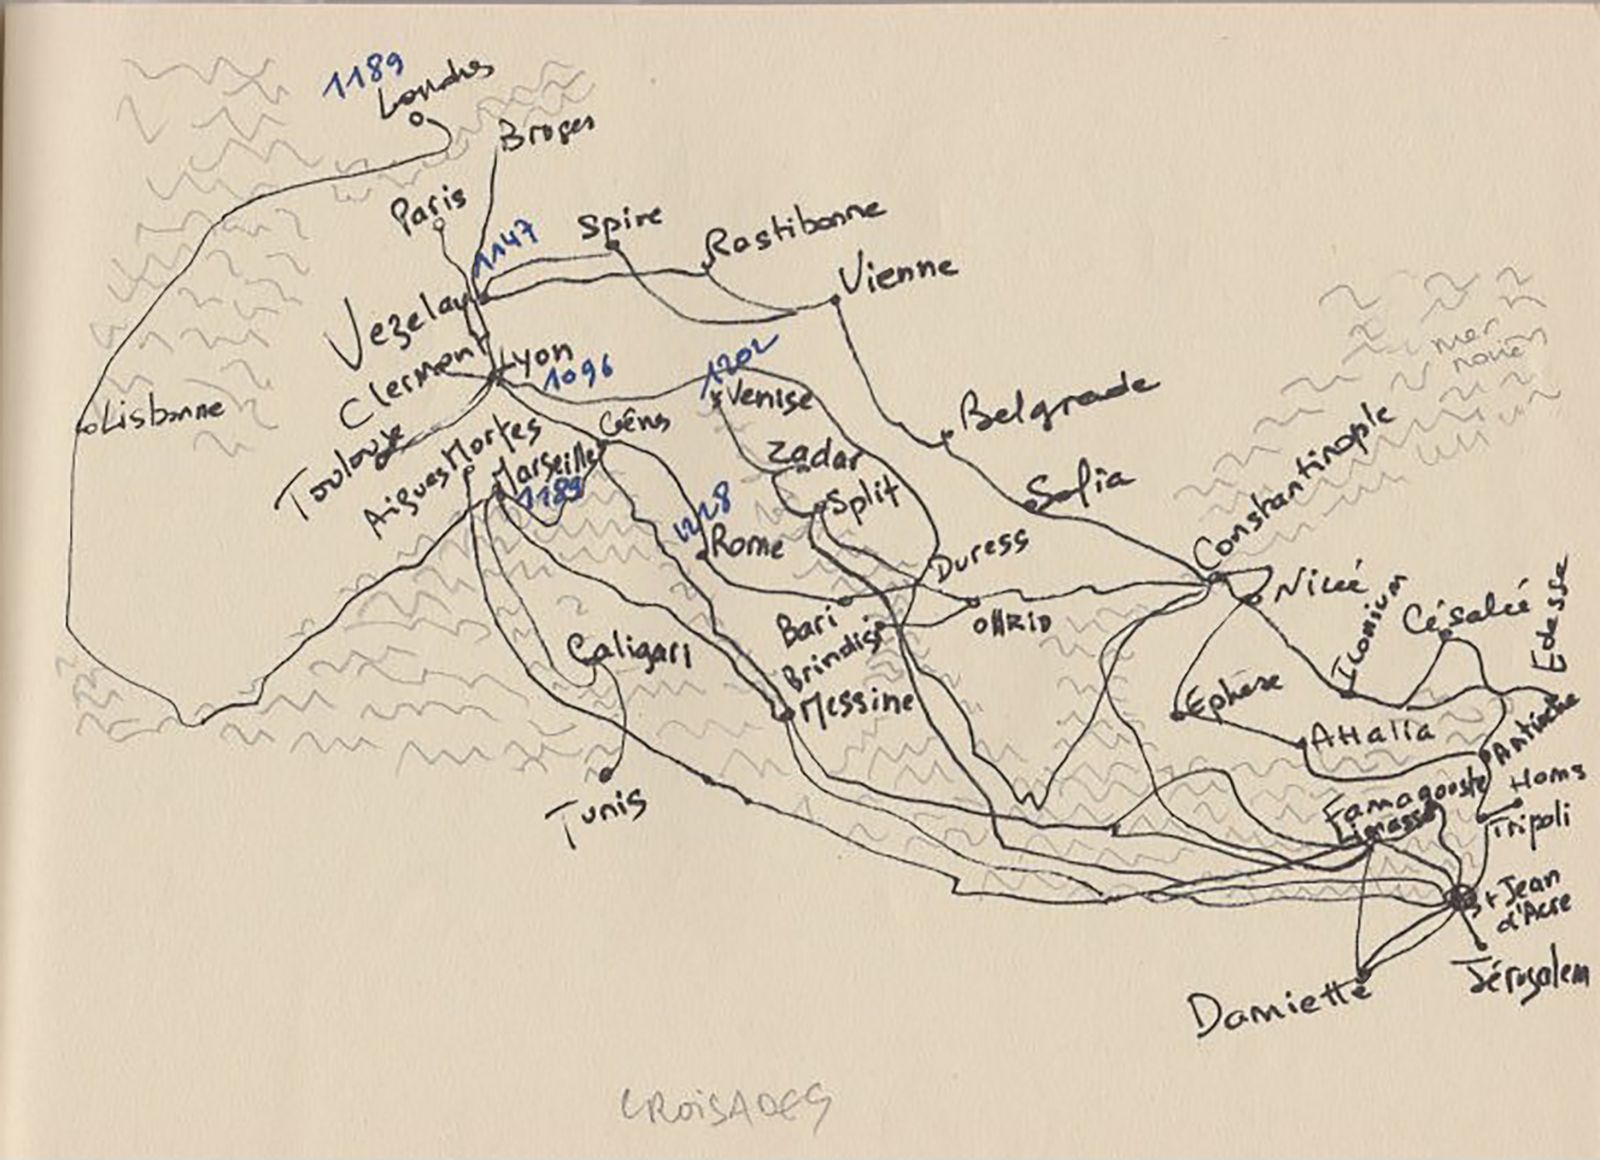 1189
Londres
Bruges
Paris
1147
Spire
Rastibonne
Vienne
Vezelay
Clermont
Lyon
1096
1202
Venise
mer
noire
Lisbonne
Toulouse
Aigues Mortes
Marseille
1189
Gêns
Zadar
Split
Belgrade
Sofia
Constantinople
1228
Rome
Duress
Bari
Brindisi
OHRID
Nicée
Iconium
Césaleé
Edesse
Caligari
Messine
Ephese
Attalia
Antioche
Homs
Famagouste
Limassol
Tripoli
Tunis
St Jean
d'Acre
Jérusalem
Damiette
CROISADES